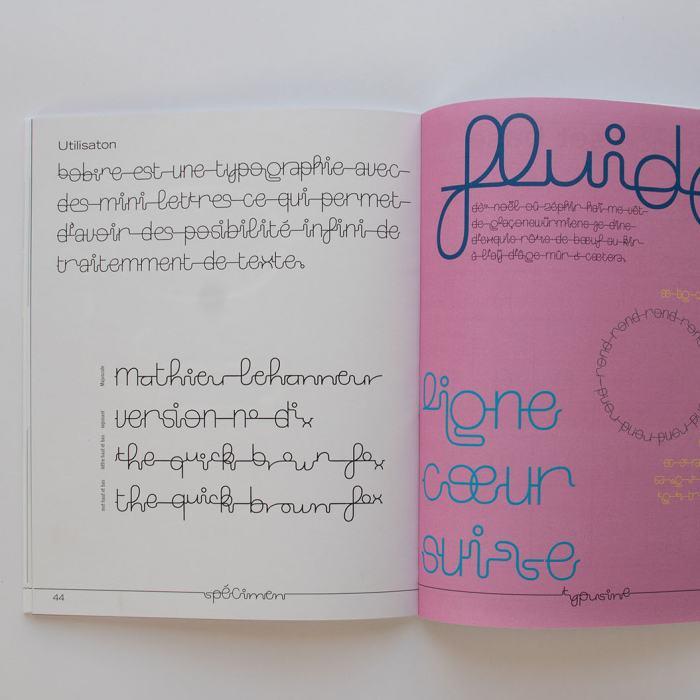 Utilisaton
bobine est une typographie avec
des mini lettres ce qui permet
d'avoir des posibilité infini de
traitemment de texte.
mathieu lehanneur
version nº dix
the quick brown fox
the quick brown fox
44
spécimen
fluide
dès noël où zéphir haï me vêt
de glaçons würmiens je dîne
d'exquis rôtis de bœuf au kir
à l'aÿ d'âge mûr & cætera.
rond-rond-rond-rond-rond-rond
ligne
cœur
suisse
typusine